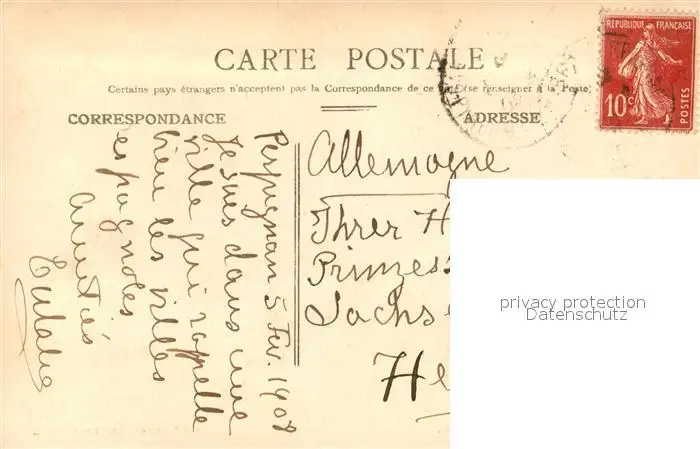 CARTE POSTALE
Certains pays étrangers n'acceptent pas la Correspondance de ce côté (se renseigner à la Poste)
CORRESPONDANCE
ADRESSE
RÉPUBLIQUE FRANÇAISE
10c
POSTES
Perpignan 5 Fev. 1908
Je suis dans une
ville qui rappelle
bien les villes
espagnoles
Amitiés
Eulalie
Allemagne
Ihrer H
Prinzess
Sachs
He
privacy protection
Datenschutz